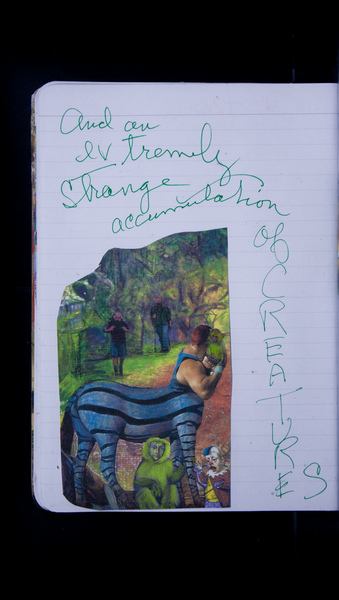 And an
extremely
strange
accumulation
of
CREATURES